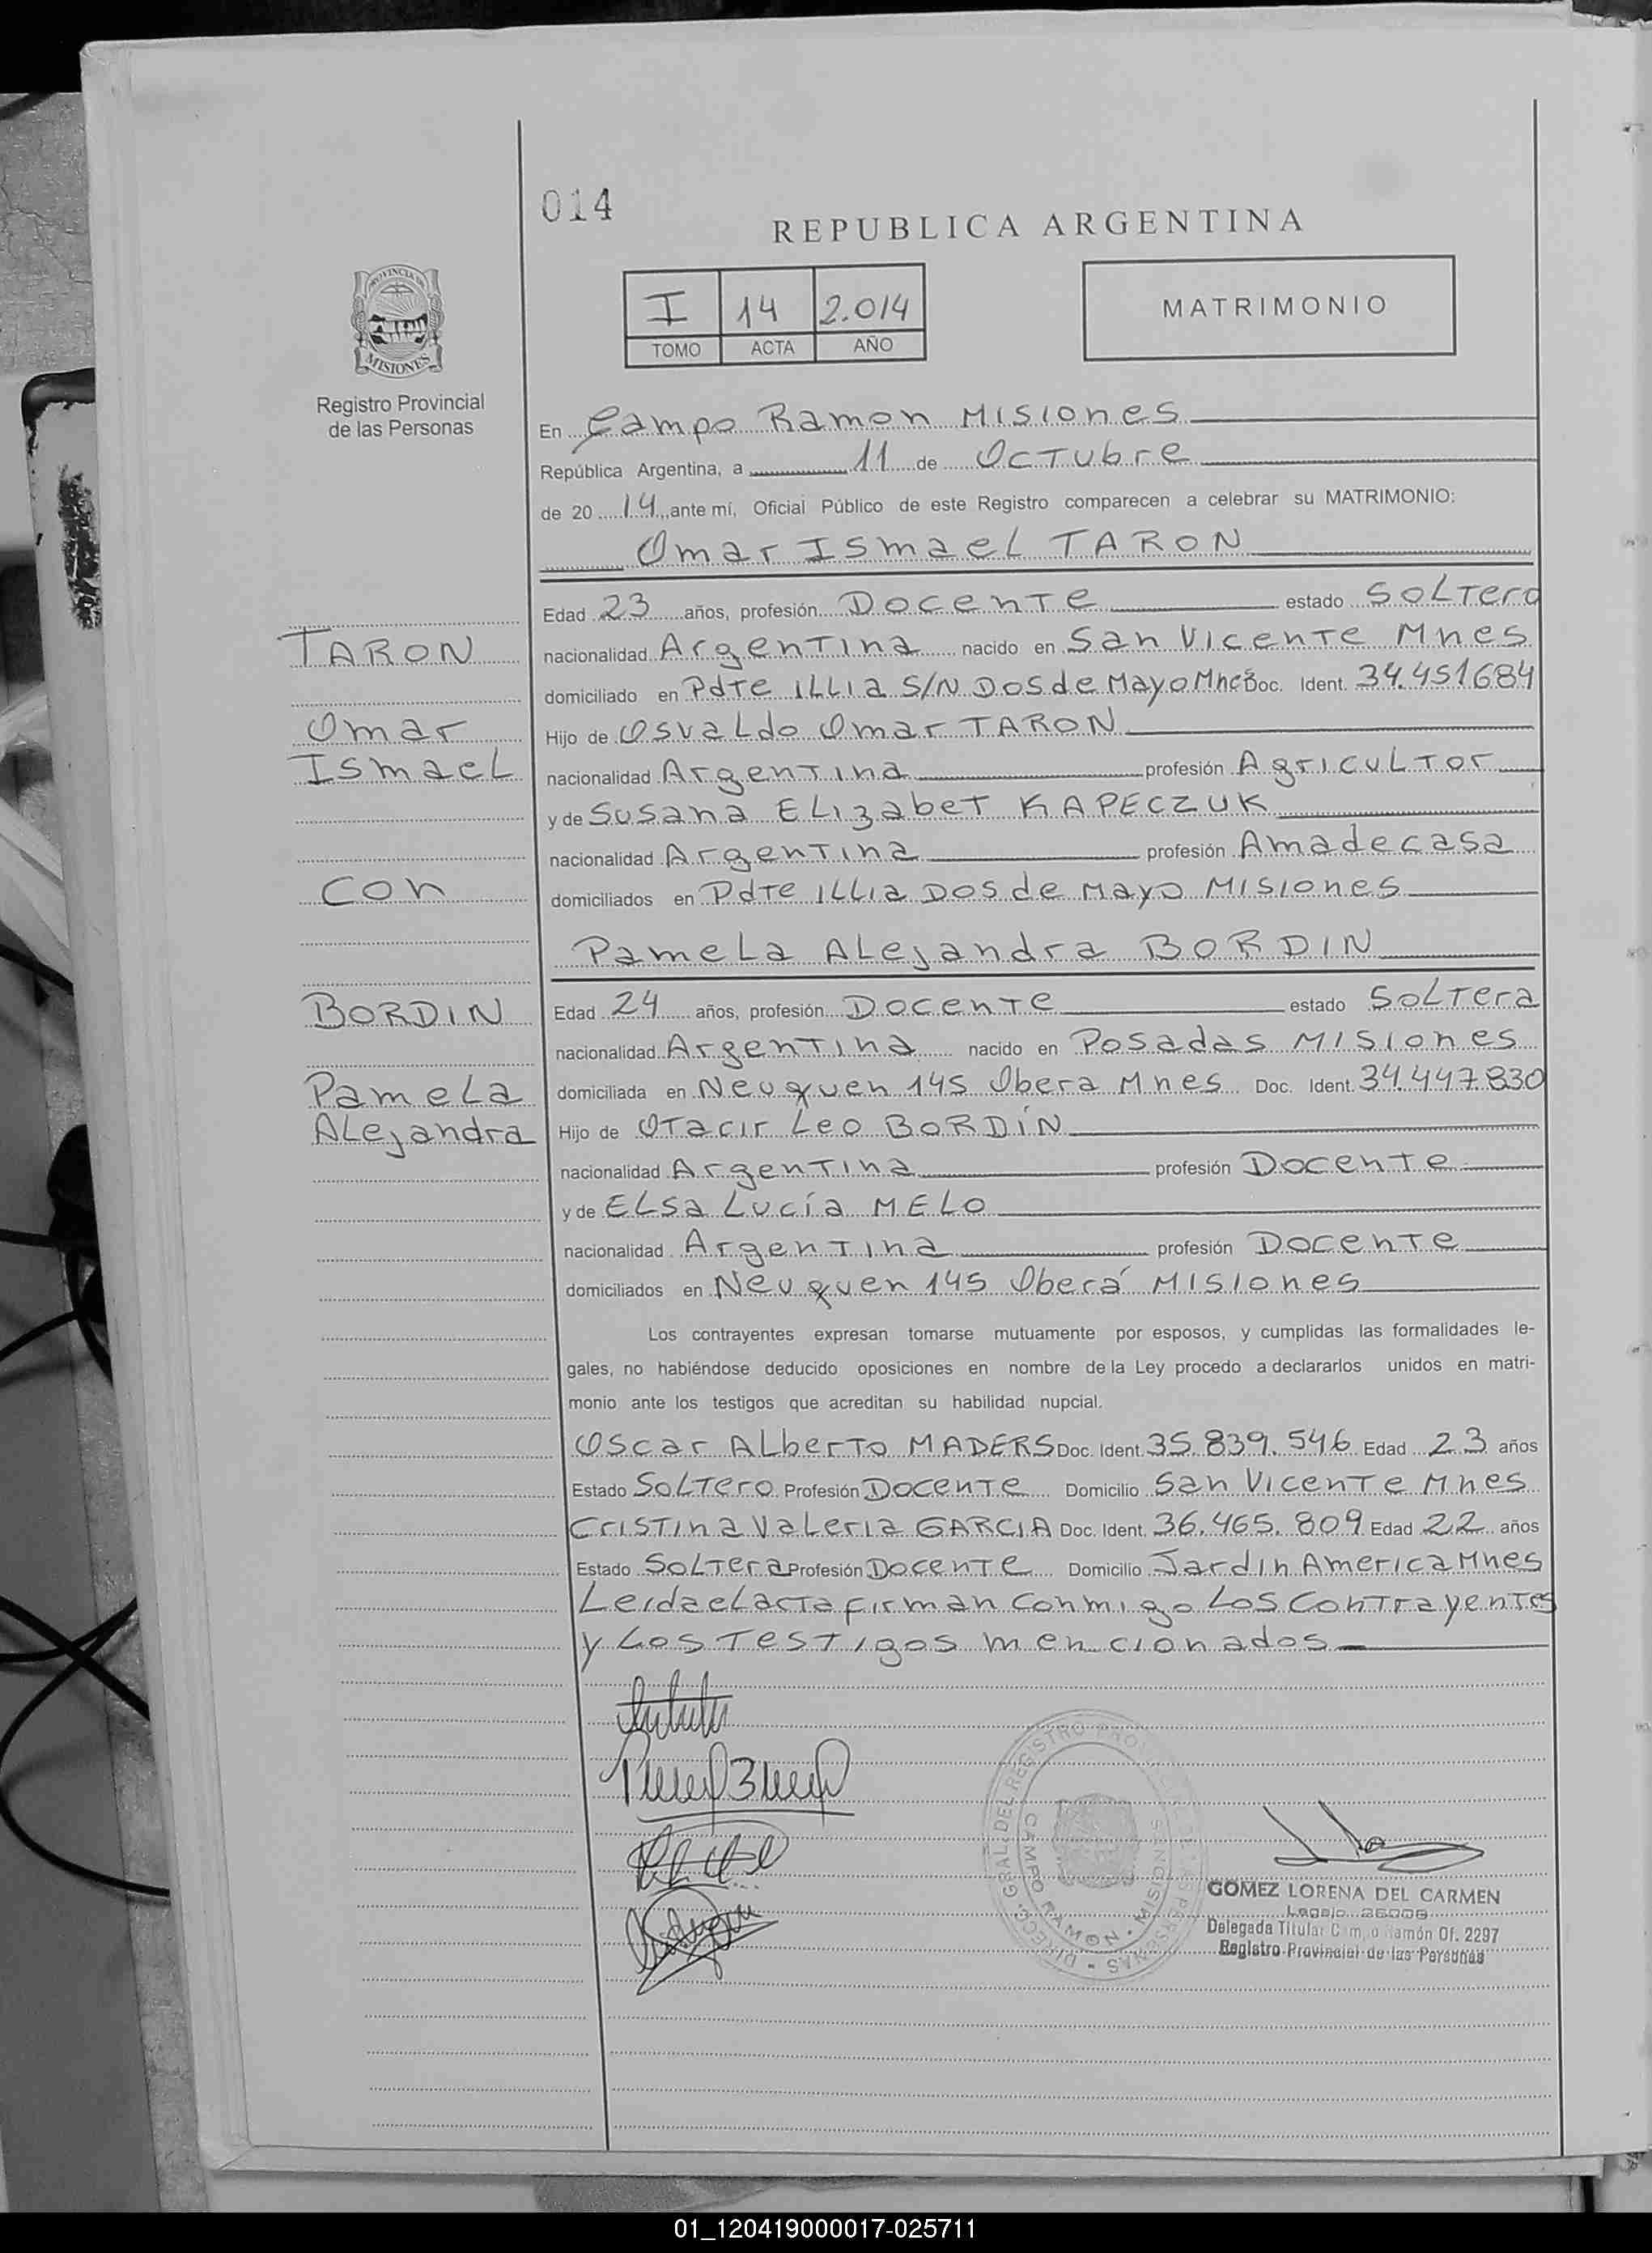 014
REPUBLICA ARGENTINA
PROVINCIA DE
MISIONES
Registro Provincial
de las Personas
I 14 2.014
TOMO ACTA AÑO
MATRIMONIO
En Campo Ramon Misiones
República Argentina, a 11 de Octubre
de 20 14 ante mí, Oficial Público de este Registro comparecen a celebrar su MATRIMONIO:
Omar Ismael TARON
Edad 23 años, profesión Docente estado Soltero
TARON
nacionalidad Argentina nacido en San Vicente Mnes
domiciliado en Pdte ILLia S/N Dos de Mayo Mnes Doc. Ident. 34.451684
Omar
Hijo de Osvaldo Omar TARON
Ismael
nacionalidad Argentina profesión Agricultor
y de Susana Elizabet KAPECZUK
nacionalidad Argentina profesión Ama de casa
con
domiciliados en Pdte ILLia Dos de Mayo Misiones
Pamela Alejandra BORDIN
BORDIN
Edad 24 años, profesión Docente estado Soltera
nacionalidad Argentina nacido en Posadas Misiones
Pamela
domiciliada en Neuquen 145 Obera Mnes Doc. Ident. 34.447.830
Alejandra
Hijo de Otacir Leo BORDÍN
nacionalidad Argentina profesión Docente
y de Elsa Lucía MELO
nacionalidad Argentina profesión Docente
domiciliados en Neuquen 145 Oberá Misiones
Los contrayentes expresan tomarse mutuamente por esposos, y cumplidas las formalidades le-
gales, no habiéndose deducido oposiciones en nombre de la Ley procedo a declararlos unidos en matri-
monio ante los testigos que acreditan su habilidad nupcial.
Oscar Alberto MADERS Doc. Ident. 35.839.546 Edad 23 años
Estado Soltero Profesión Docente Domicilio San Vicente Mnes
Cristina Valeria GARCIA Doc. Ident. 36.465.809 Edad 22 años
Estado Soltera Profesión Docente Domicilio Jardin America Mnes
Leida el acta firman conmigo los contrayentes
y los testigos mencionados
GOMEZ LORENA DEL CARMEN
Legajo
Delegada Titular Campo Ramón Of. 2297
Registro Provincial de las Personas
CAMPO RAMON - MISIONES
01_120419000017-025711